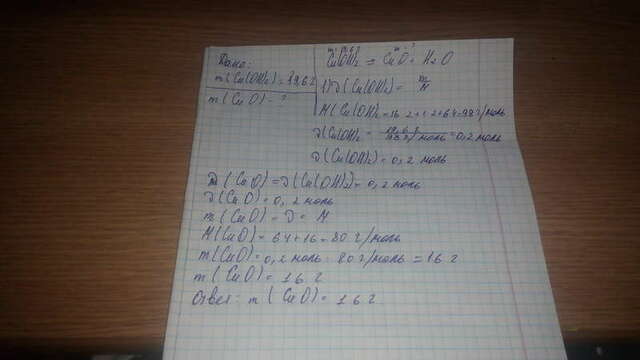 Дано:
m(Cu(OH)₂)=19,6 г
m(CuO)-?
m=19,6 г m-?
Cu(OH)₂ = CuO + H₂O
1) ν(Cu(OH)₂)= m/M
M(Cu(OH)₂=16·2+1·2+64=98 г/моль
ν(Cu(OH)₂= 19,6 г/98 г/моль=0,2 моль
ν(Cu(OH)₂)=0,2 моль
ν(CuO)=ν(Cu(OH)₂)=0,2 моль
ν(CuO)=0,2 моль
m(CuO)=ν=M
M(CuO)=64+16=80 г/моль
m(CuO)=0,2 моль·80 г/моль=16 г
m(CuO)=16 г
Ответ: m(CuO)=16 г.